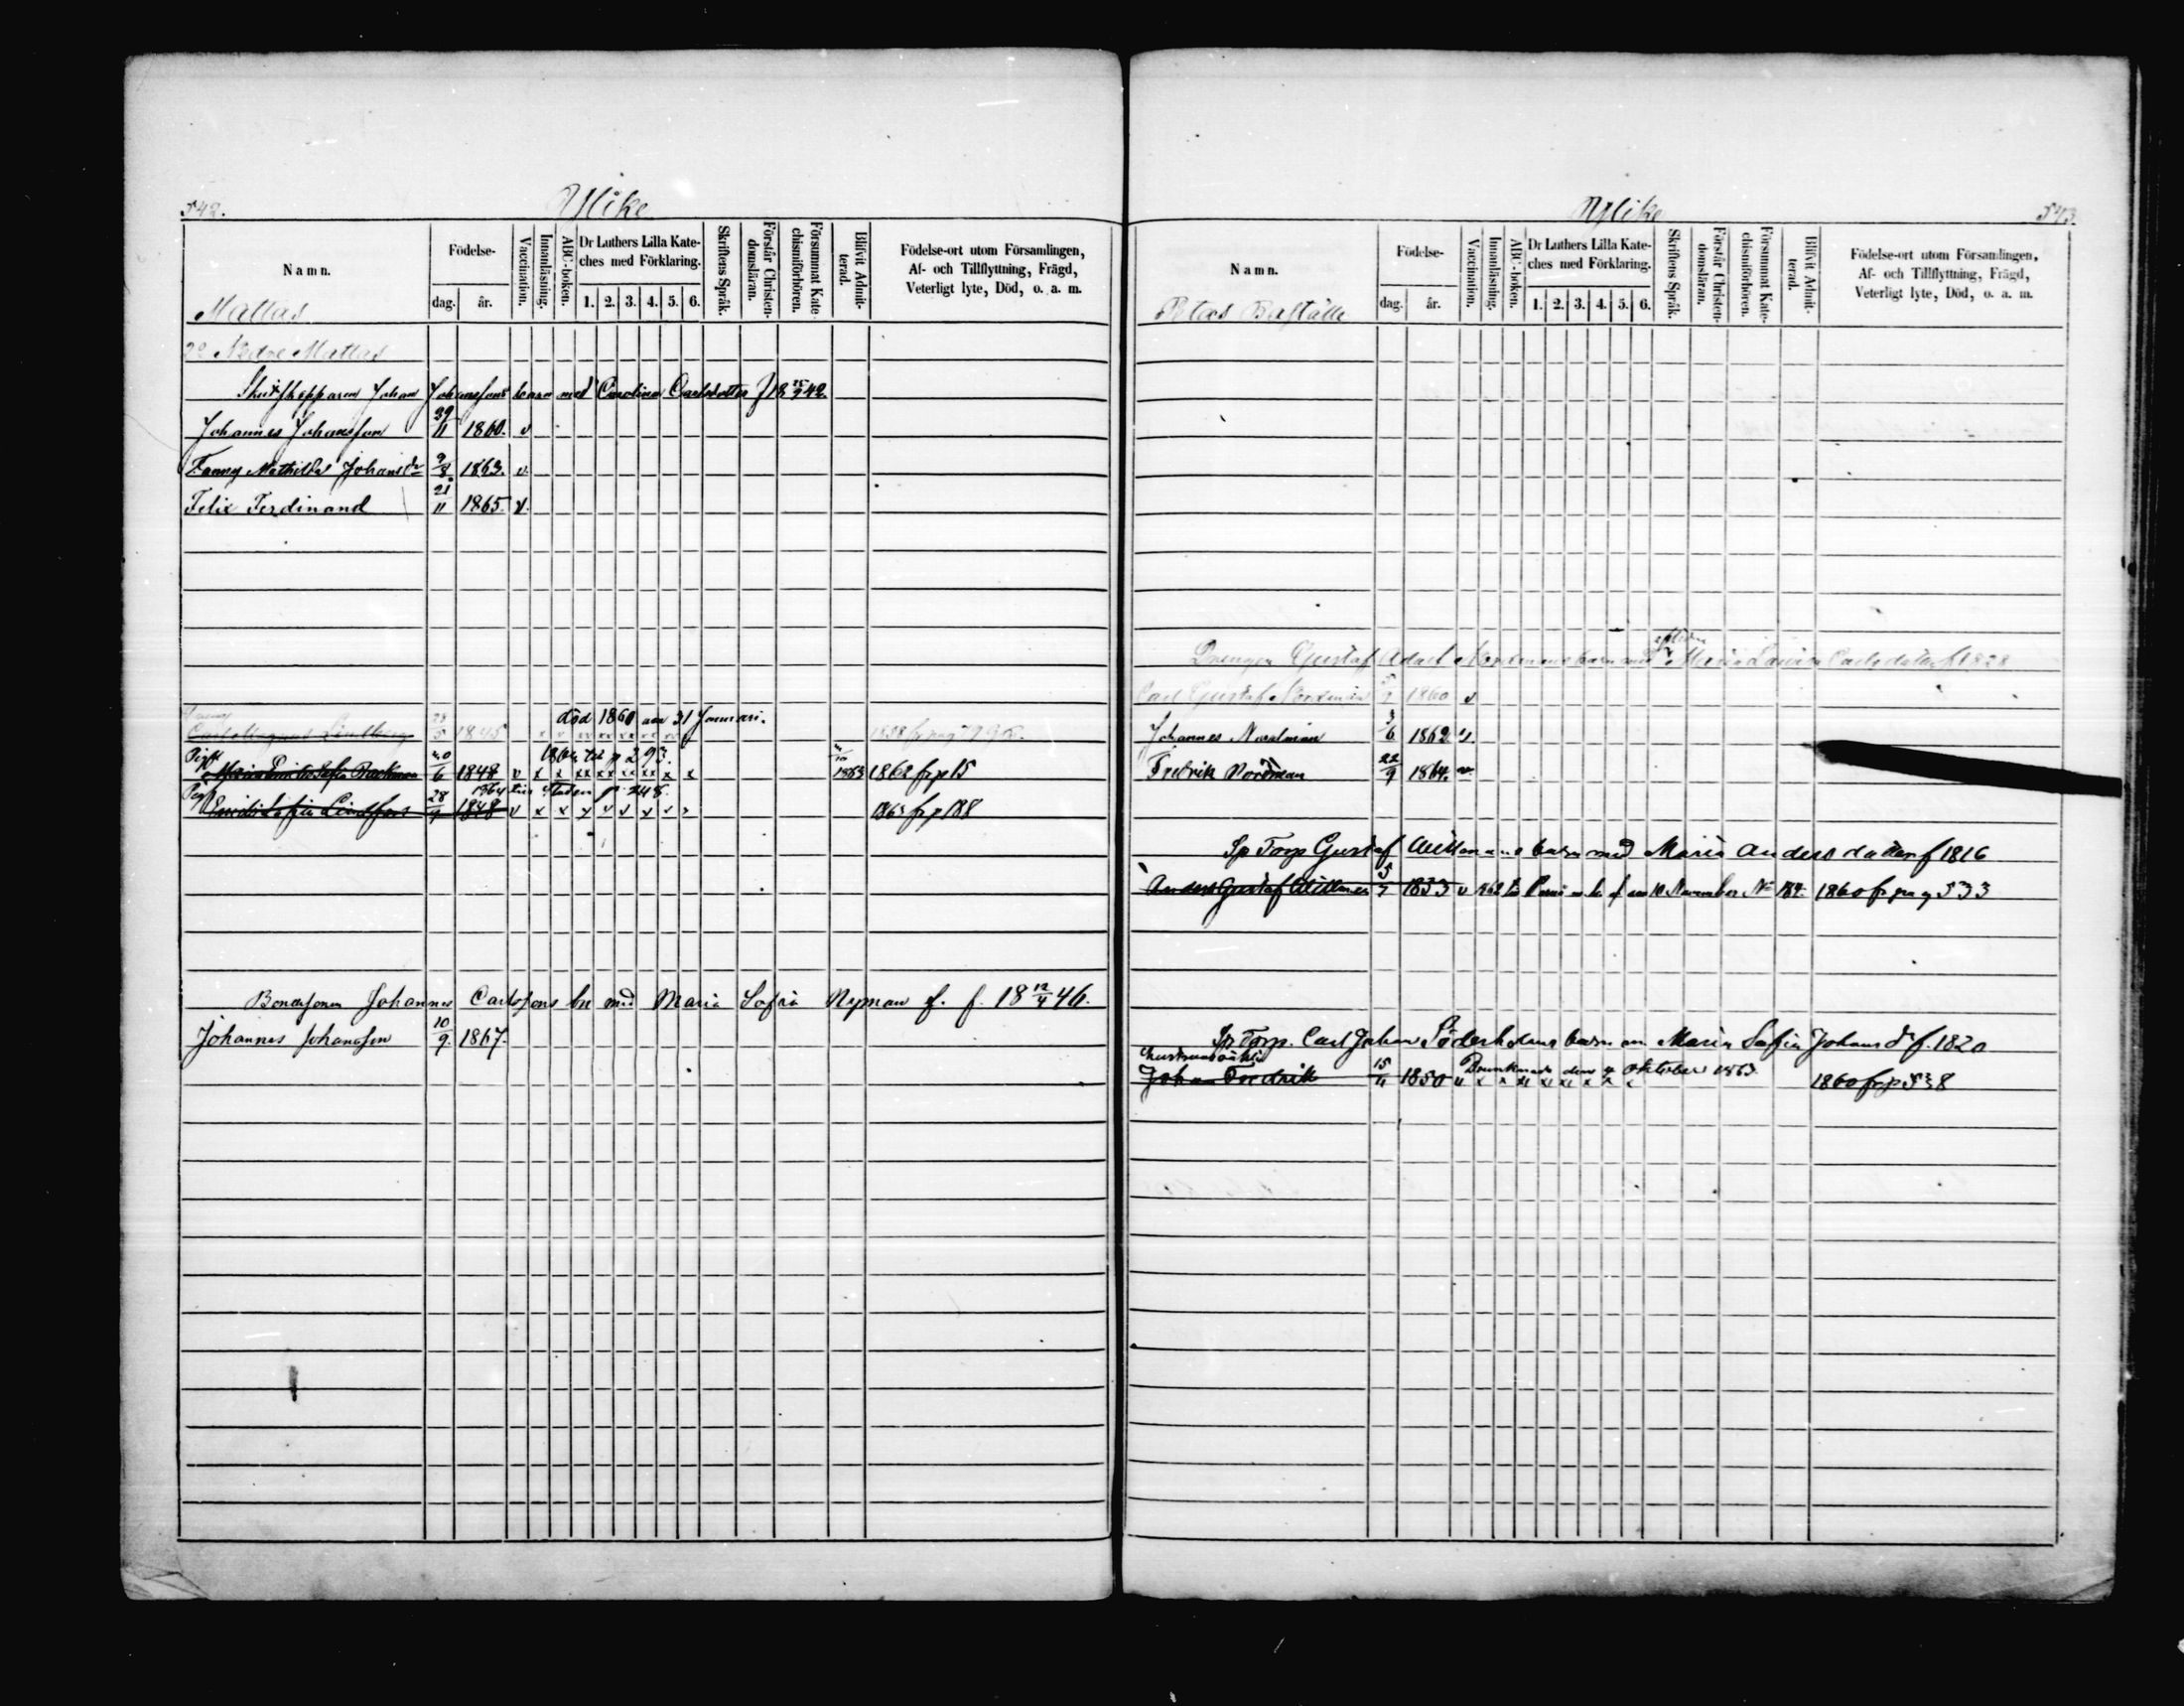 542.
Ylike
Namn.
Födelse-
dag.
år.
Vaccination.
Innanläsning.
ABC-boken.
Dr Luthers Lilla Kate-
ches med Förklaring.
1. 2. 3. 4. 5. 6.
Skriftens Språk.
Förstår Christen-
domsläran.
Försummat Kate-
chismiförhören.
Blifvit Admit-
terad.
Födelse-ort utom Församlingen,
Af- och Tillflyttning, Frägd,
Veterligt lyte, Död, o. a. m.
Mattas
Nedre Mattas
Johan Johanssons barn med Carolina Carlsdotter f 18 15/9 42.
Johannes Johansson 29/11 1860. v
Fanny Mathilda Johansdr 9/8 1863. v.
Felix Ferdinand 21/11 1865. v.
död 1860 den 31 Januari.
Carl Magnus Lindberg 28/5 1845
Pigº 1864 till p 293.
Maria Emilia Sofia Backman 20/6 1848 v x x xx xx xx xx x x 1863 1862 fr p 15
Pigº 1864 p 248.
Emilia Sofia Lindfors 28/9 1848 v x x 1863 fr p 188
Bondesonen Johannes Carlssons bn med Maria Sofia Nyman f. 18 12/4 46.
Johannes Johansson 10/9. 1867.
Ylike
543
Namn.
Födelse-
dag.
år.
Vaccination.
Innanläsning.
ABC-boken.
Dr Luthers Lilla Kate-
ches med Förklaring.
1. 2. 3. 4. 5. 6.
Skriftens Språk.
Förstår Christen-
domsläran.
Försummat Kate-
chismiförhören.
Blifvit Admit-
terad.
Födelse-ort utom Församlingen,
Af- och Tillflyttning, Frägd,
Veterligt lyte, Död, o. a. m.
Peters Boställe
Drengen Gustaf Adolf Nordmans barn med Maria Lovisa Carlsdotter f 1828
Carl Gustaf Nordman 1860 v
Johannes Nordman 3/6 1862 v.
Fredrik Nordman 22/9 1864. v.
Sp Torp Gustaf barn med Maria Andersdotter f 1816
Anders Gustaf 5/7 1833 v 10 November No 1860 fr pag 533
Sp Torp. Carl Johan Söderholms barn m Maria Sofia Johansdr f. 1820
Drunknade den 4 Oktober 1863.
Johan Fredrik 15/4 1850 v x x x x x x x 1860 fr p 538